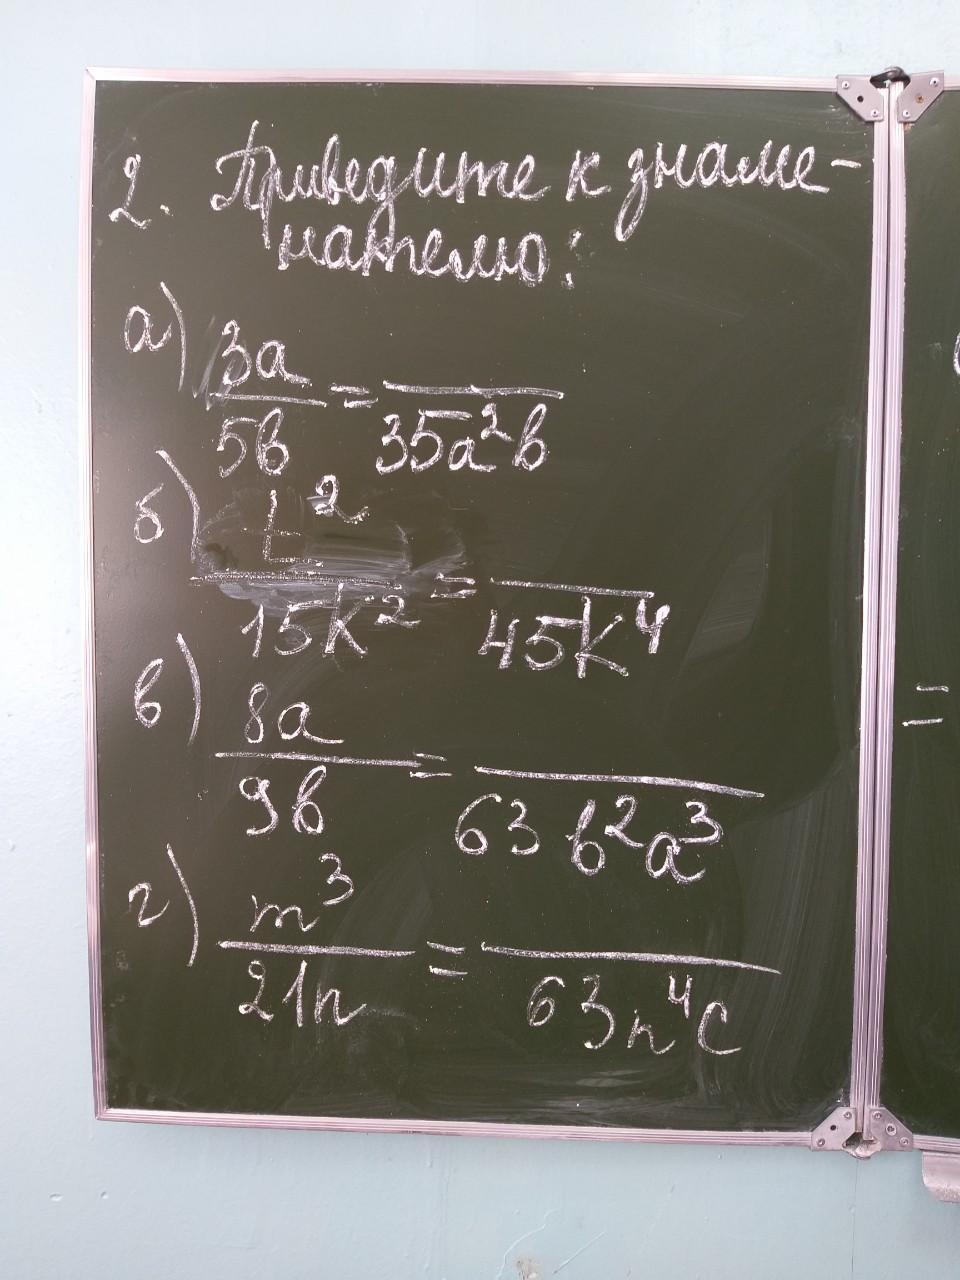 2. Приведите к знаме-
нателю:
а) 3a/5b = —/35a²b
б) t²/15k² = —/45k⁴
в) 8a/9b = —/63b²a³
г) m³/21n = —/63n⁴c
=